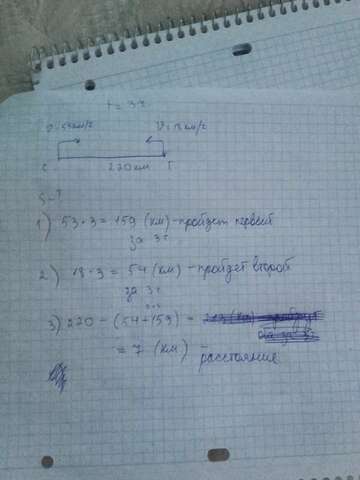 t = 3 ч
V = 53 км/ч V = 18 км/ч
С 220 км Т
S - ?
1) 53 · 3 = 159 (км) - пройдет первый
за 3 ч
2) 18 · 3 = 54 (км) - пройдет второй
за 3 ч
3) 220 - (54 + 159) =
= 7 (км) - расстояние